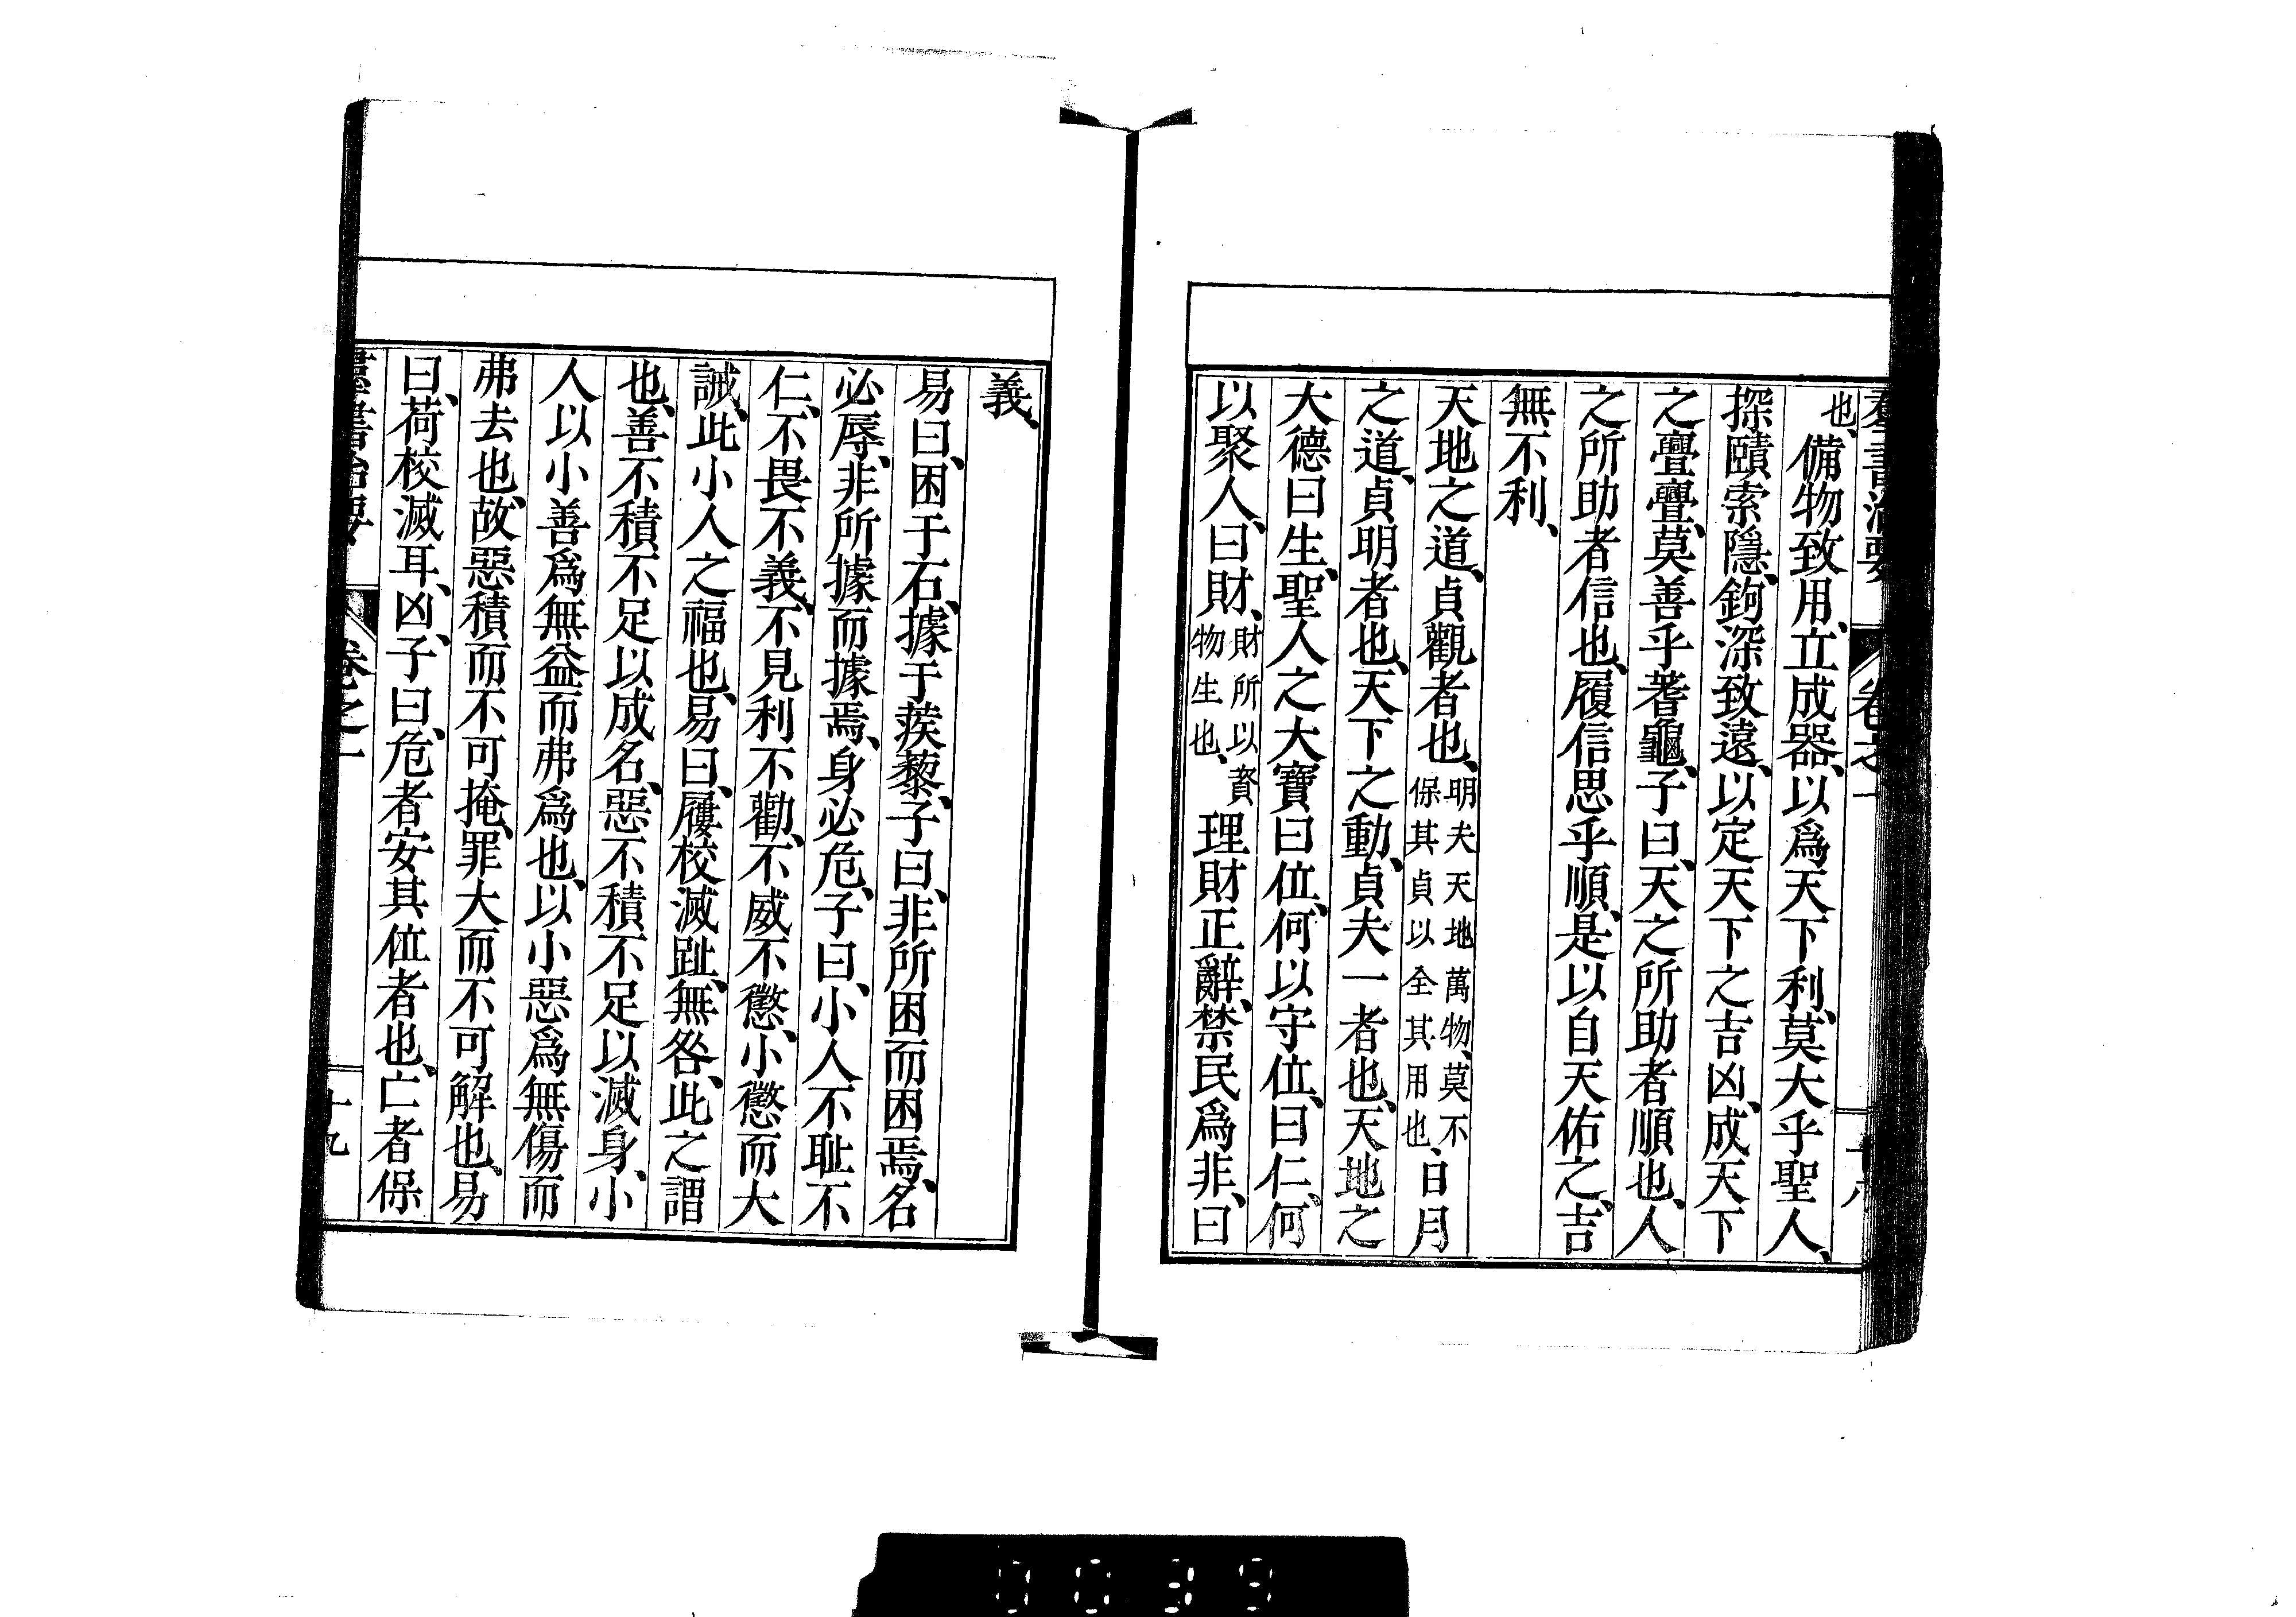 羣書治要 卷之一 十八
也、備物致用、立成器、以爲天下利、莫大乎聖人、
探賾索隱、鉤深致遠、以定天下之吉凶、成天下
之亹亹、莫善乎蓍龜、子曰、天之所助者順也、人
之所助者信也、履信思乎順、是以自天佑之、吉
無不利、
天地之道、貞觀者也、明夫天地萬物、莫不保其貞以全其用也、日月
之道、貞明者也、天下之動、貞夫一者也、天地之
大德曰生、聖人之大寶曰位、何以守位、曰仁、何
以聚人、曰財、財所以資物生也、理財正辭、禁民爲非、曰
義、
易曰、困于石、據于蒺藜、子曰、非所困而困焉、名
必辱、非所據而據焉、身必危、子曰、小人不耻不
仁、不畏不義、不見利不勸、不威不懲、小懲而大
誡、此小人之福也、易曰、屨校滅趾、無咎、此之謂
也、善不積不足以成名、惡不積不足以滅身、小
人以小善爲無益而弗爲也、以小惡爲無傷而
弗去也、故惡積而不可掩、罪大而不可解也、易
曰、荷校滅耳、凶、子曰、危者安其位者也、亡者保
羣書治要 卷之一 十九
0039